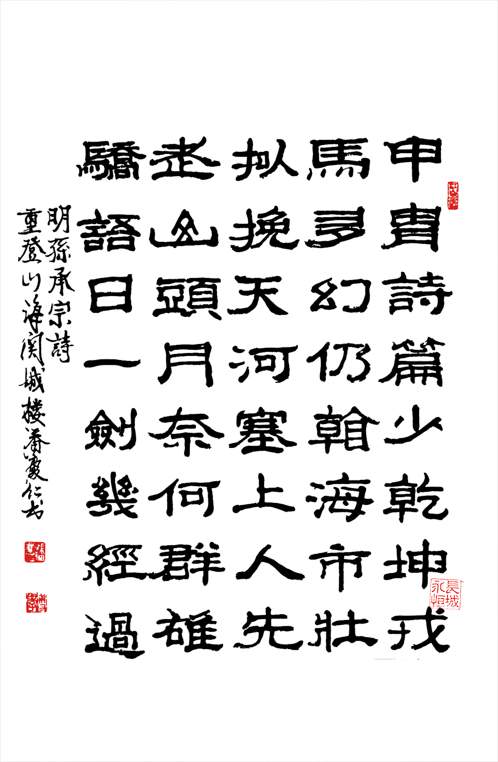 甲冑詩篇少乾坤戎
馬多幻仍翰海市壯
拟挽天河塞上人先
老山頭月奈何群雄
驕語日一劍幾經過
明孫承宗詩
重登山海関城楼潘仁书
長城
永恒